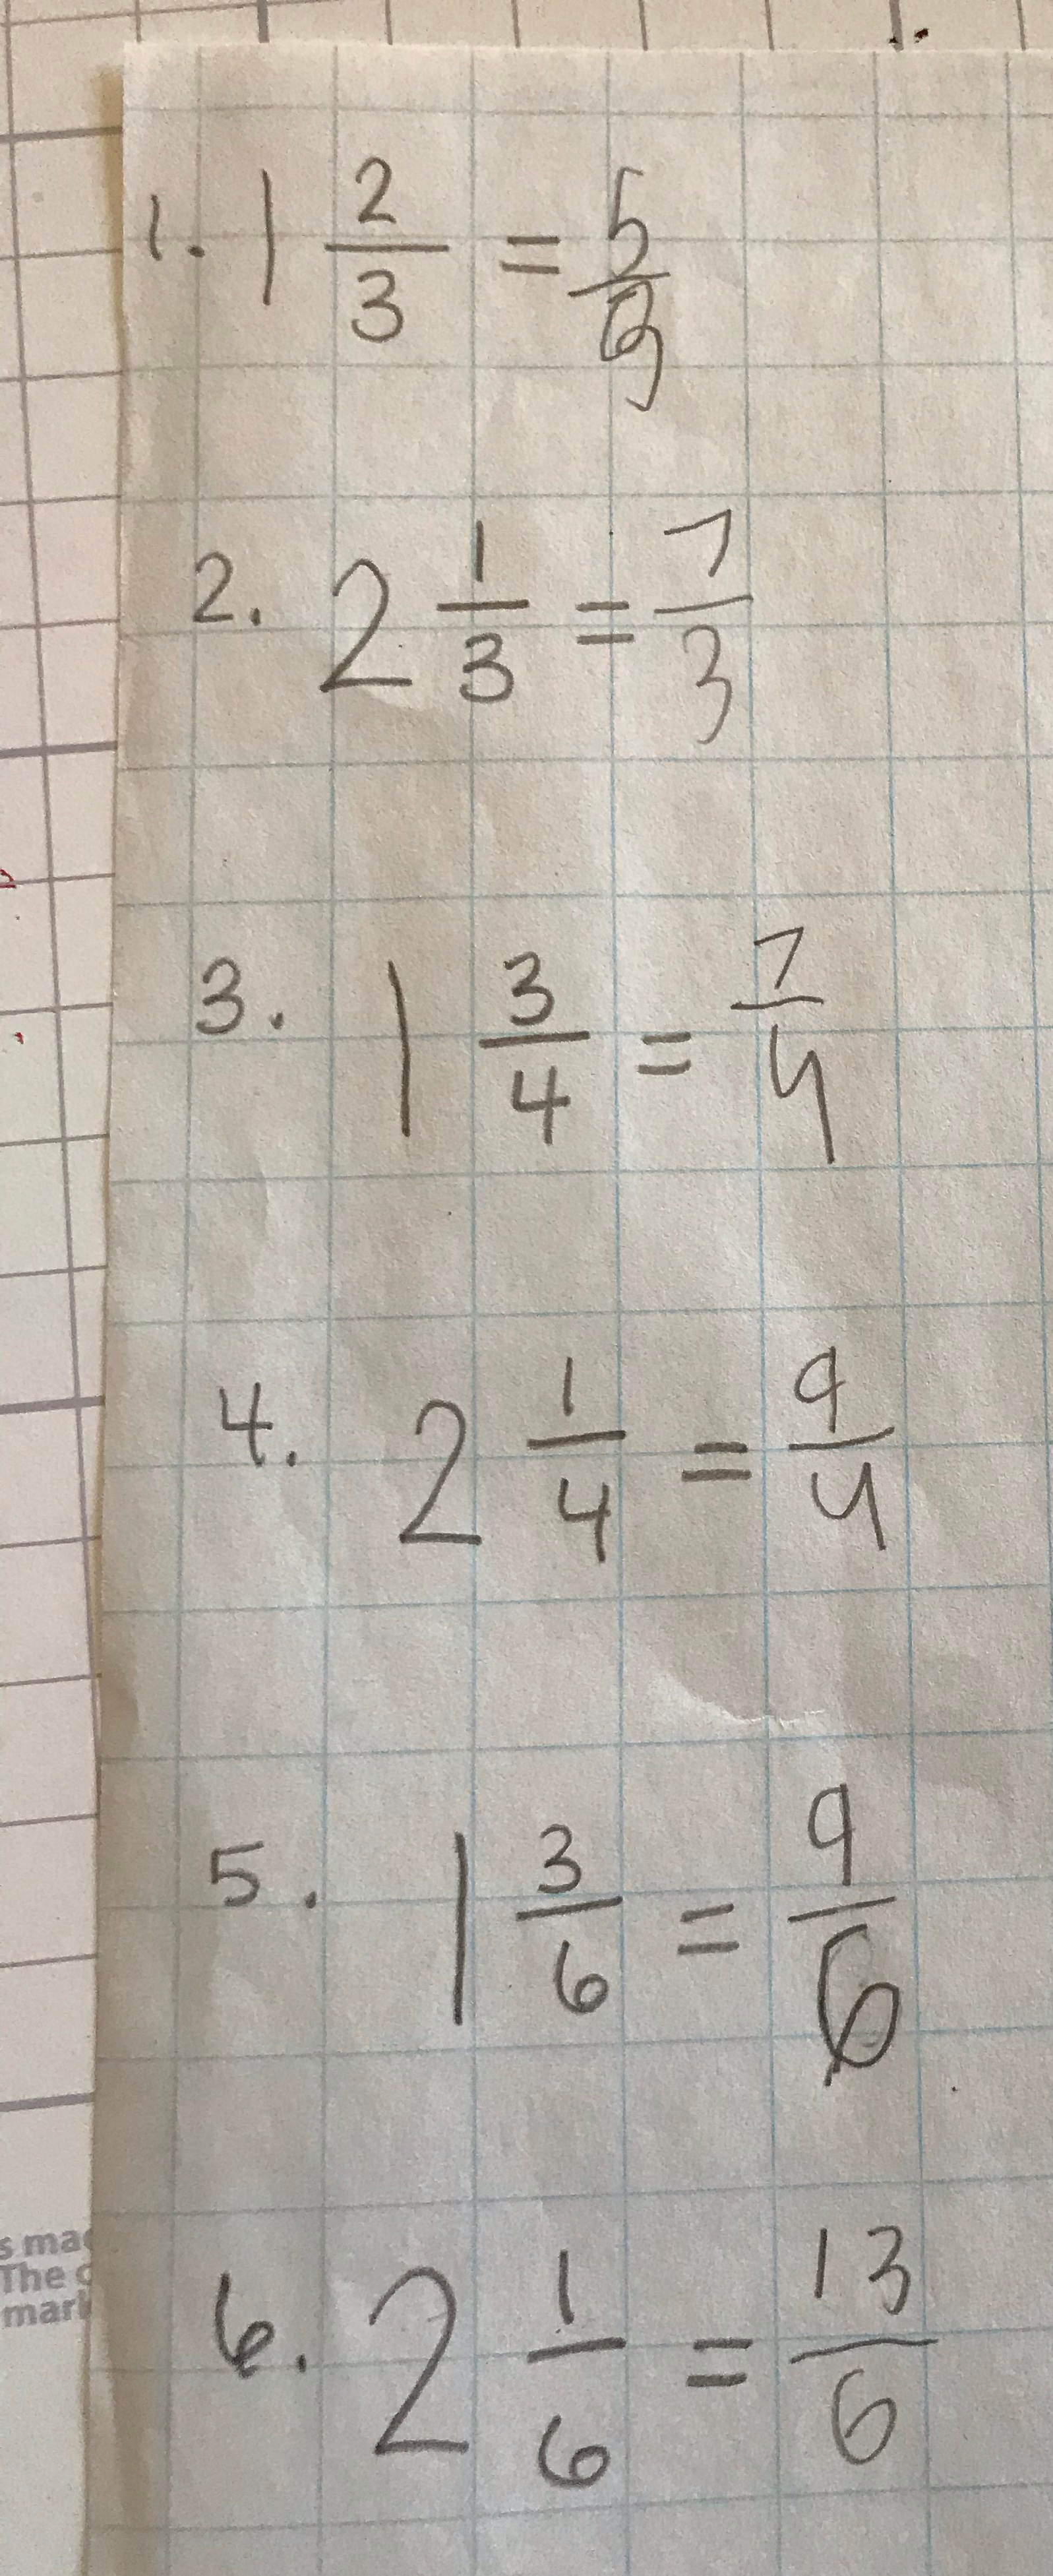 1. 1 2/3 = 5/3
2. 2 1/3 = 7/3
3. 1 3/4 = 7/4
4. 2 1/4 = 9/4
5. 1 3/6 = 9/6
6. 2 1/6 = 13/6
s ma
The
mark